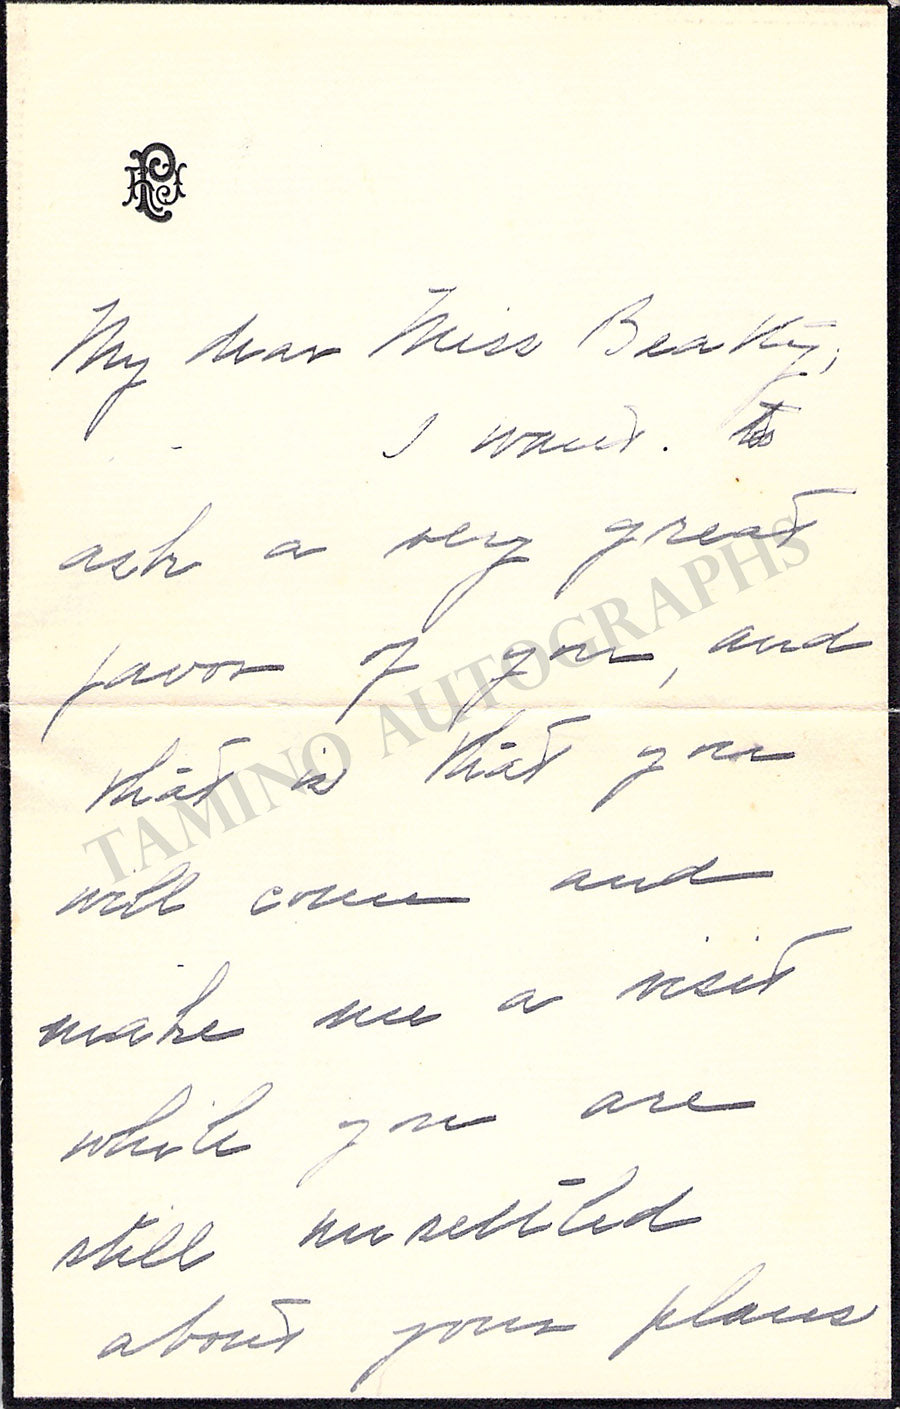 My dear Miss Beatty,
I want. to
ask a very great
favor of you, and
that is that you
will come and
make me a visit
while you are
still unsettled
about your plans
TAMINO AUTOGRAPHS